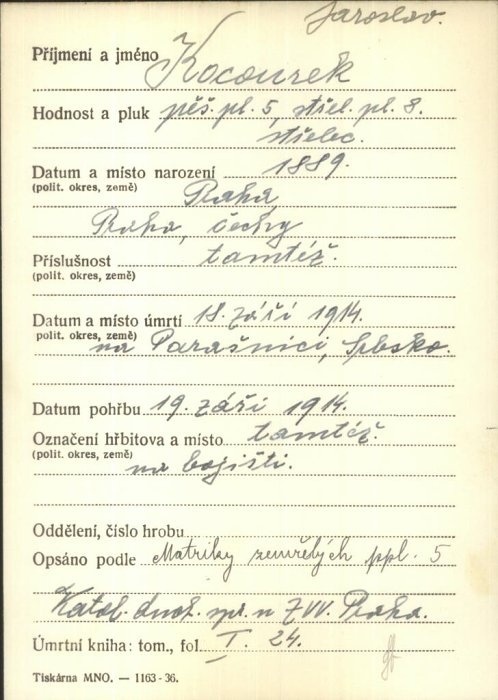 Jaroslav.
Příjmení a jméno Kocourek
Hodnost a pluk pěš. pl. 5, střel. pl. 8.
střelec.
Datum a místo narození 1889.
(polit. okres, země) Praha,
Praha, čechy
Příslušnost tamtéž.
(polit. okres, země)
Datum a místo úmrtí 18. září 1914.
polit. okres, země)
na Parašnici, Srbsko.
Datum pohřbu 19. září 1914.
Označení hřbitova a místo tamtéž.
(polit. okres, země)
na bojišti.
Oddělení, číslo hrobu
Opsáno podle Matriky zemřelých ppl. 5
Katol. duch. spr. u ZVV. Praha.
Úmrtní kniha: tom., fol. I. 24.
Tiskárna MNO. — 1163-36.